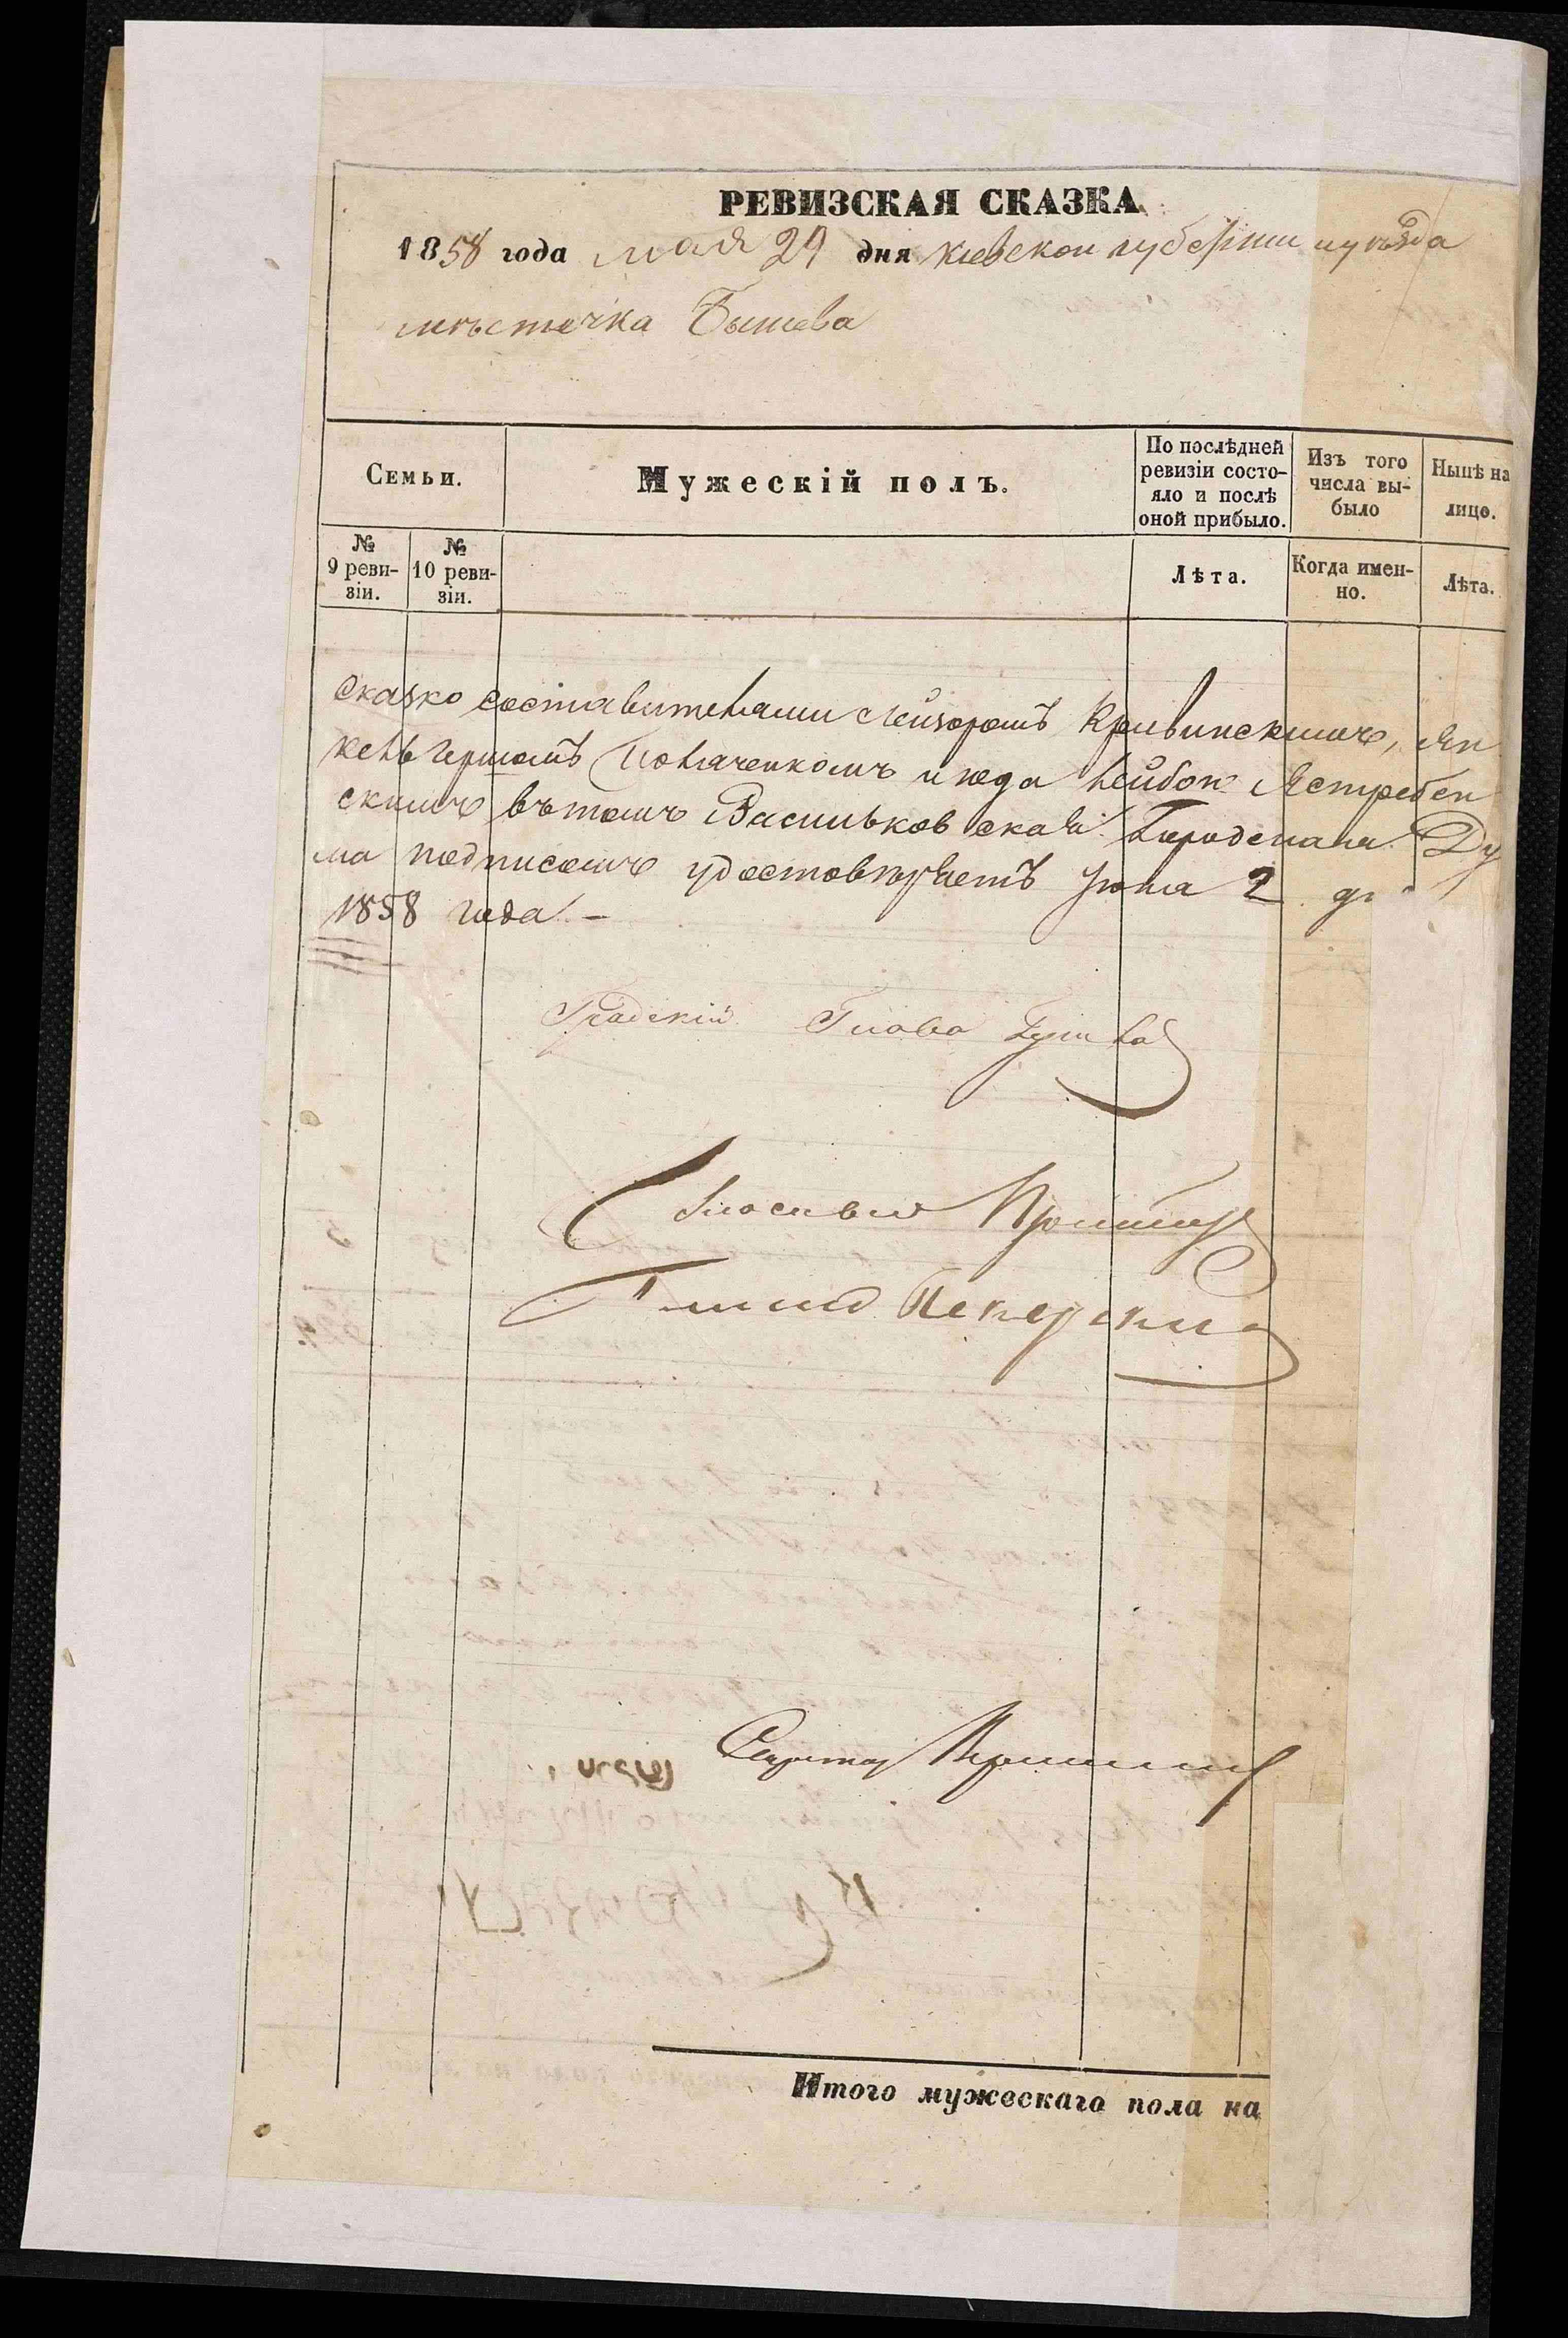 РЕВИЗСКАЯ СКАЗКА
1858 года мая 29 дня Киевской губернии и уѣзда
мѣстечка Бышева
Семьи.
Мужескій полъ.
По послѣдней ревизіи состо-
яло и послѣ
оной прибыло.
Изъ того
числа вы-
было
Нынѣ на
лицо.
№
9 реви-
зіи.
№
10 реви-
зіи.
Лѣта.
Когда имен-
но.
Лѣта.
сказко составителями Лейзоромъ Кривинскимъ, Ян
кель Гершомъ Толмаченкомъ и Юда Лейбою Ястребен
скимъ въ томъ Васильковская Городская Ду
ма подписомъ удостовѣряетъ Юня 2
1858 года. –
Градскій Глава
Гласные
Секретарь
Итого мужескаго пола на